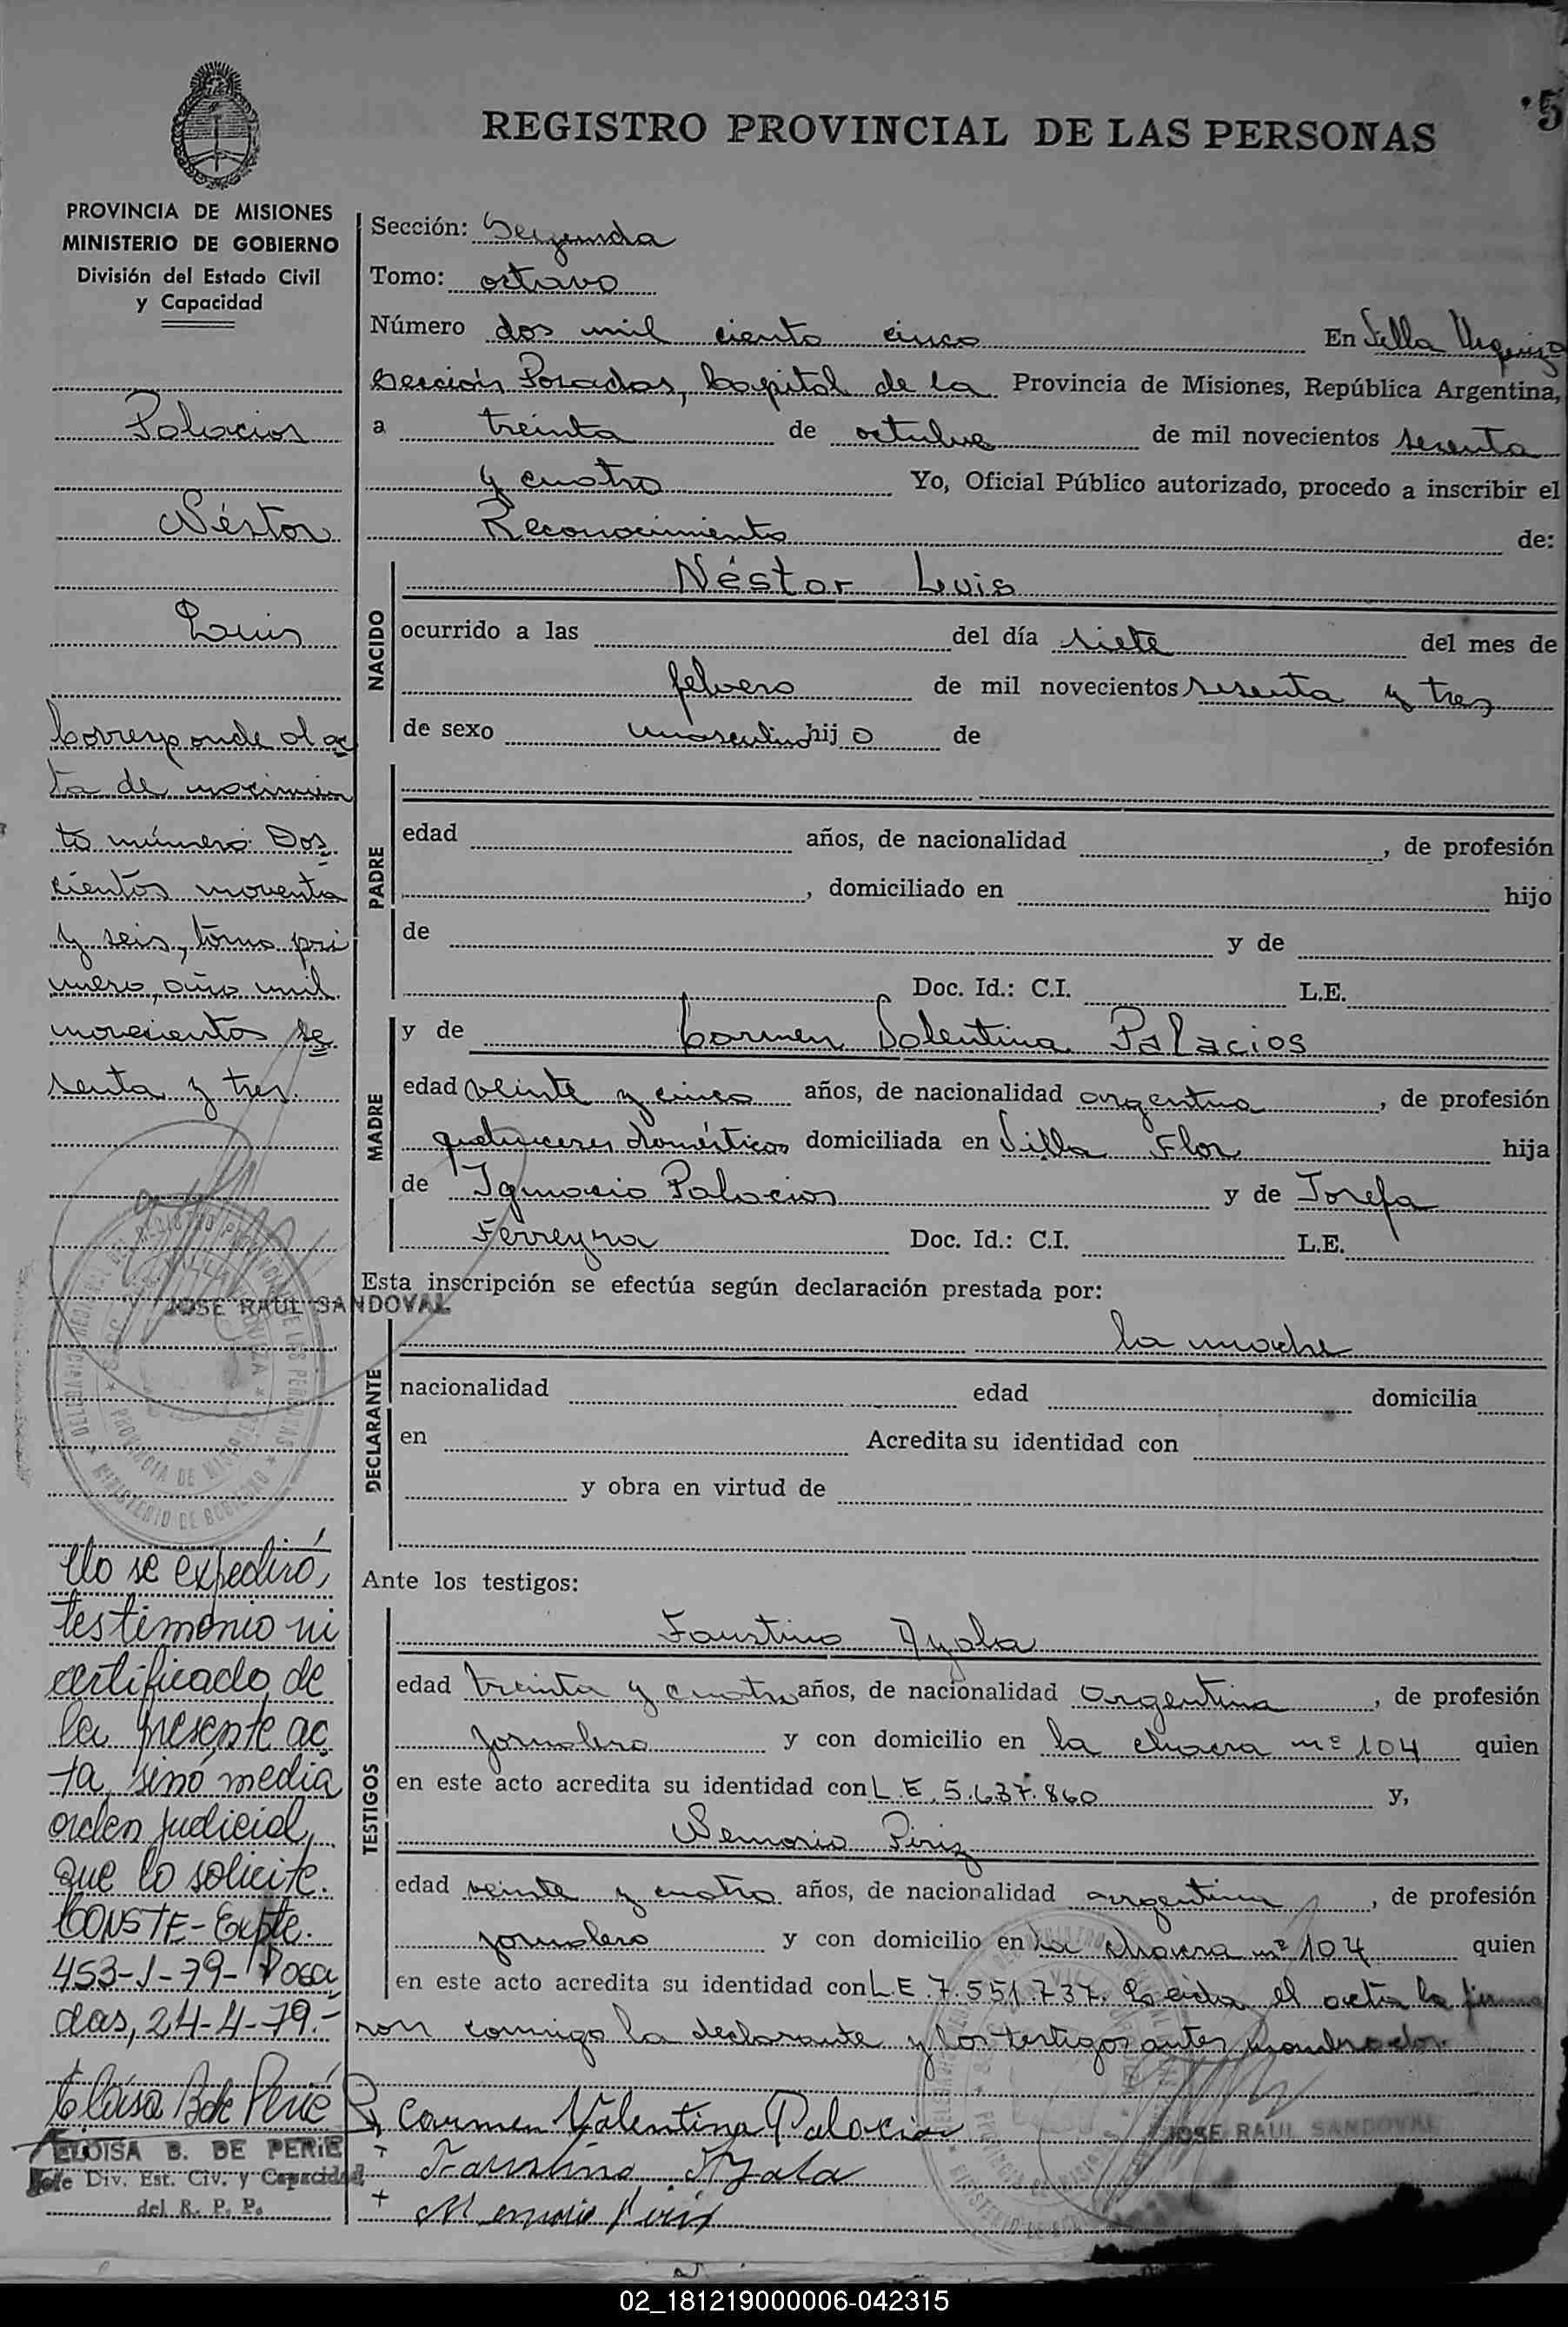 5
REGISTRO PROVINCIAL DE LAS PERSONAS
PROVINCIA DE MISIONES
MINISTERIO DE GOBIERNO
División del Estado Civil
y Capacidad
Palacios
Néstor
Luis
Corresponde al ac
ta de nacimien
to número: Dos
cientos noventa
y seis, tomo pri
mero, año mil
novecientos se
senta y tres.
JOSE RAUL SANDOVAL
No se expedirá,
testimonio ni
certificado de
la presente ac
ta, sinó media
orden judicial,
que lo solicite.
CONSTE-Expte.
453-J-79- Posa
das, 24-4-79.-
Eloísa B de Perié
ELOISA B. DE PERIE
Jefe Div. Est. Civ. y Capacidad
del R. P. P.
Sección: Segunda
Tomo: octavo
Número dos mil ciento cinco En Villa Urquiza
sección Posadas, Capital de la Provincia de Misiones, República Argentina,
a treinta de octubre de mil novecientos sesenta
y cuatro Yo, Oficial Público autorizado, procedo a inscribir el
Reconocimiento de:
NACIDO
Néstor Luis
ocurrido a las del día siete del mes de
febrero de mil novecientos sesenta y tres
de sexo masculino hij o de
PADRE
edad años, de nacionalidad , de profesión
, domiciliado en hijo
de y de
Doc. Id.: C.I. L.E.
MADRE
y de Carmen Valentina Palacios
edad veinte y cinco años, de nacionalidad argentina , de profesión
quehaceres domésticos domiciliada en Villa Flor hija
de Ignacio Palacios y de Josefa
Ferreyra Doc. Id.: C.I. L.E.
Esta inscripción se efectúa según declaración prestada por:
DECLARANTE
la madre
nacionalidad edad domicilia
en Acredita su identidad con
y obra en virtud de
Ante los testigos:
TESTIGOS
Faustino Ayala
edad treinta y cuatro años, de nacionalidad argentina , de profesión
jornalero y con domicilio en la chacra nº 104 quien
en este acto acredita su identidad con L.E. 5.637.860 y,
Nemorio Piriz
edad veinte y cuatro años, de nacionalidad argentina , de profesión
jornalero y con domicilio en la chacra nº 104 quien
en este acto acredita su identidad con L.E. 7.551.737. Leída el acta la firma
ron conmigo la declarante y los testigos antes nombrados.
Carmen Valentina Palacio
Faustino Ayala
JOSE RAUL SANDOVAL
02_181219000006-042315